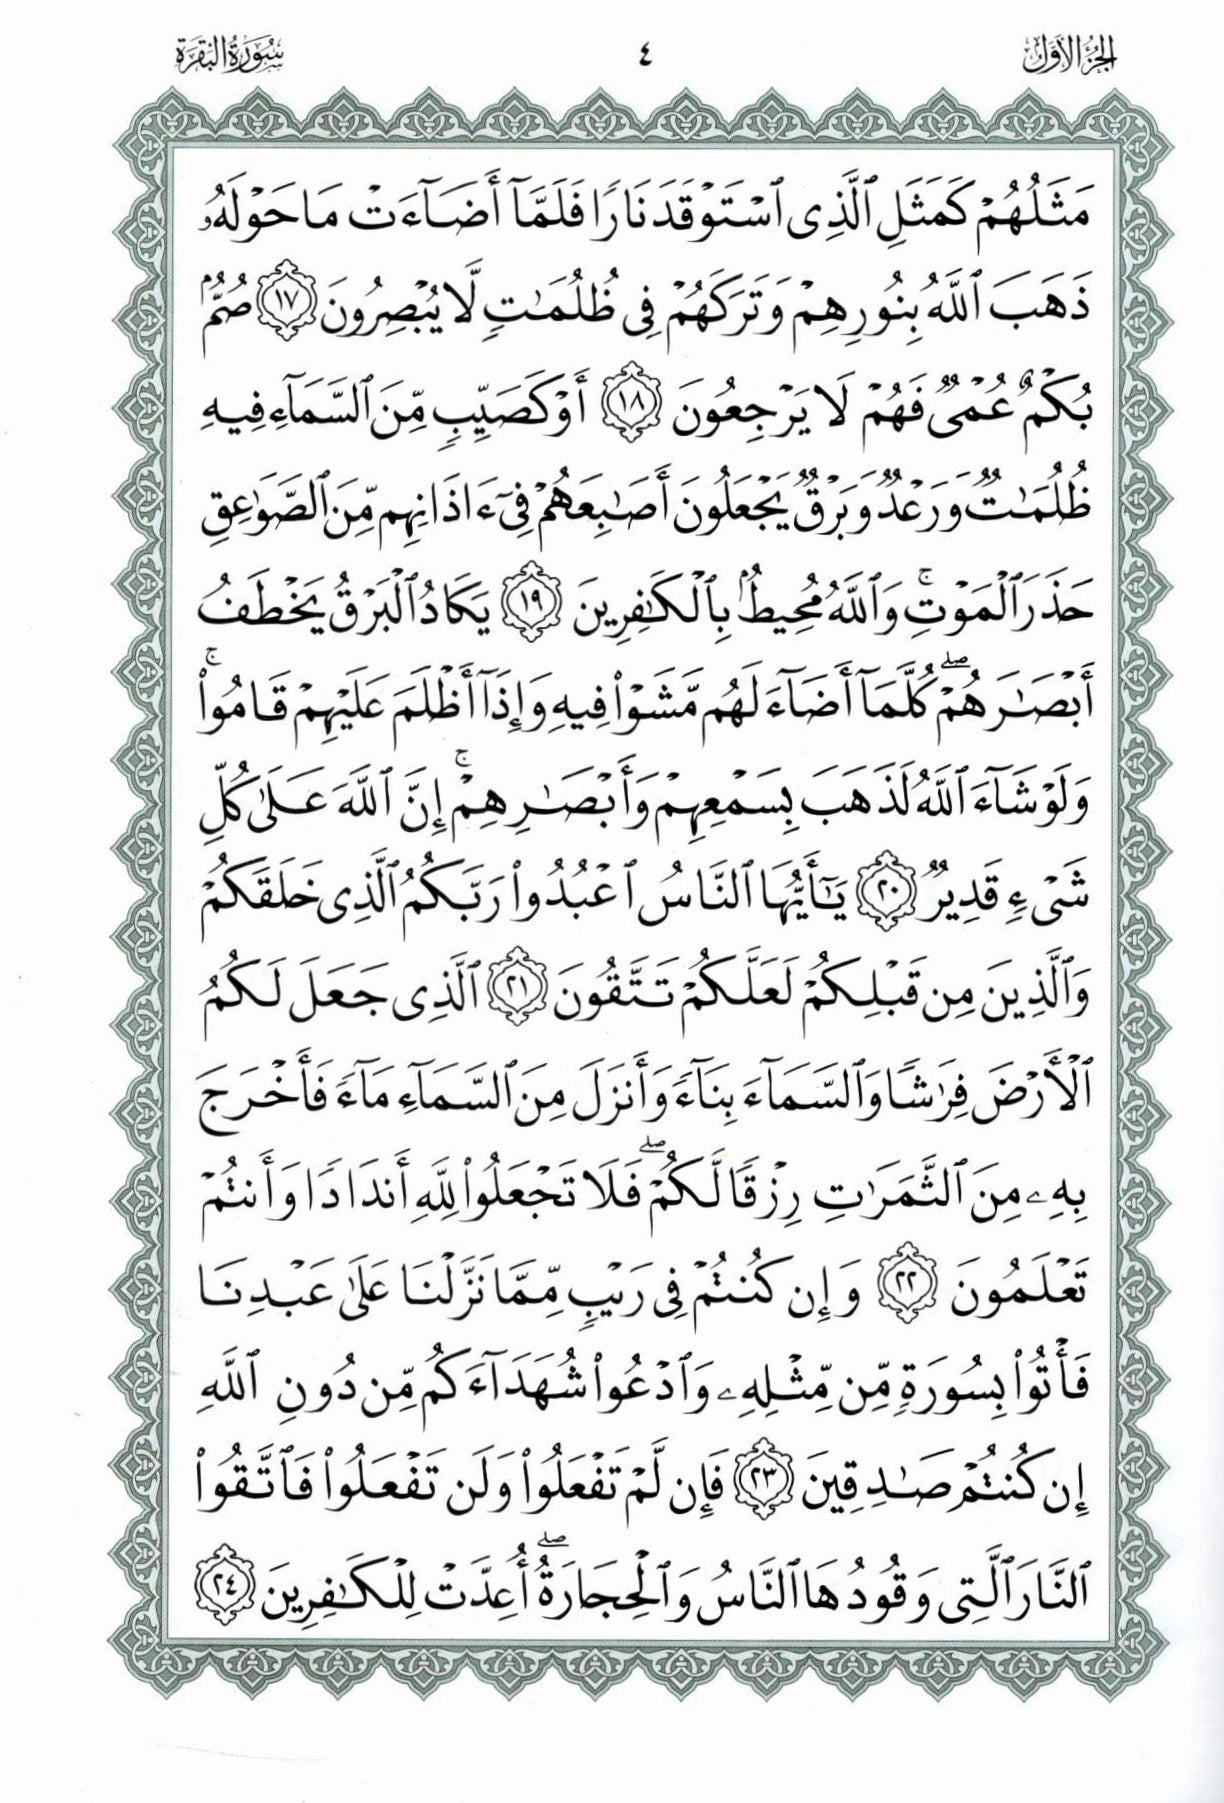 الجزء الأول
٤
سورة البقرة
مَثَلُهُمْ كَمَثَلِ ٱلَّذِى ٱسْتَوْقَدَ نَارًا فَلَمَّآ أَضَآءَتْ مَا حَوْلَهُۥ
ذَهَبَ ٱللَّهُ بِنُورِهِمْ وَتَرَكَهُمْ فِى ظُلُمَٰتٍ لَّا يُبْصِرُونَ ١٧ صُمٌّۢ
بُكْمٌ عُمْىٌ فَهُمْ لَا يَرْجِعُونَ ١٨ أَوْ كَصَيِّبٍ مِّنَ ٱلسَّمَآءِ فِيهِ
ظُلُمَٰتٌ وَرَعْدٌ وَبَرْقٌ يَجْعَلُونَ أَصَٰبِعَهُمْ فِىٓ ءَاذَانِهِم مِّنَ ٱلصَّوَٰعِقِ
حَذَرَ ٱلْمَوْتِ ۚ وَٱللَّهُ مُحِيطٌۢ بِٱلْكَٰفِرِينَ ١٩ يَكَادُ ٱلْبَرْقُ يَخْطَفُ
أَبْصَٰرَهُمْ ۖ كُلَّمَآ أَضَآءَ لَهُم مَّشَوْا۟ فِيهِ وَإِذَآ أَظْلَمَ عَلَيْهِمْ قَامُوا۟ ۚ
وَلَوْ شَآءَ ٱللَّهُ لَذَهَبَ بِسَمْعِهِمْ وَأَبْصَٰرِهِمْ ۚ إِنَّ ٱللَّهَ عَلَىٰ كُلِّ
شَىْءٍ قَدِيرٌ ٢٠ يَٰٓأَيُّهَا ٱلنَّاسُ ٱعْبُدُوا۟ رَبَّكُمُ ٱلَّذِى خَلَقَكُمْ
وَٱلَّذِينَ مِن قَبْلِكُمْ لَعَلَّكُمْ تَتَّقُونَ ٢١ ٱلَّذِى جَعَلَ لَكُمُ
ٱلْأَرْضَ فِرَٰشًا وَٱلسَّمَآءَ بِنَآءً وَأَنزَلَ مِنَ ٱلسَّمَآءِ مَآءً فَأَخْرَجَ
بِهِۦ مِنَ ٱلثَّمَرَٰتِ رِزْقًا لَّكُمْ ۖ فَلَا تَجْعَلُوا۟ لِلَّهِ أَندَادًا وَأَنتُمْ
تَعْلَمُونَ ٢٢ وَإِن كُنتُمْ فِى رَيْبٍ مِّمَّا نَزَّلْنَا عَلَىٰ عَبْدِنَا
فَأْتُوا۟ بِسُورَةٍ مِّن مِّثْلِهِۦ وَٱدْعُوا۟ شُهَدَآءَكُم مِّن دُونِ ٱللَّهِ
إِن كُنتُمْ صَٰدِقِينَ ٢٣ فَإِن لَّمْ تَفْعَلُوا۟ وَلَن تَفْعَلُوا۟ فَٱتَّقُوا۟
ٱلنَّارَ ٱلَّتِى وَقُودُهَا ٱلنَّاسُ وَٱلْحِجَارَةُ ۖ أُعِدَّتْ لِلْكَٰفِرِينَ ٢٤